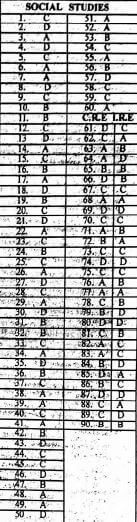 SOCIAL STUDIES
1. C 51. A
2. D 52. A
3. A 53. B
4. D 54. C
5. C 55. A
6. A 56. B
7. A 57. D
8. D 58. C
9. C 59. C
10. B 60. A
11. B C.R.E I.R.E
12. C 61. D C
13. D 62. C A
14. A 63. A B
15. C 64. A D
16. B 65. B B
17. B 66. D B
18. D 67. C C
19. B 68. A A
20. C 69. D D
21. D 70. C C
22. A 71. A B
23. C 72. B A
24. B 73. C C
25. C 74. D D
26. A 75. C C
27. D 76. A B
28. C 77. A A
29. A 78. C B
30. D 79. B D
31. B 80. D D
32. B 81. C B
33. C 82. A C
34. A 83. A C
35. D 84. B D
36. B 85. D A
37. C 86. B C
38. A 87. D D
39. A 88. C A
40. C 89. C C
41. A 90. B B
42. B
43. D
44. C
45. C
46. D
47. B
48. A
49. A
50. D